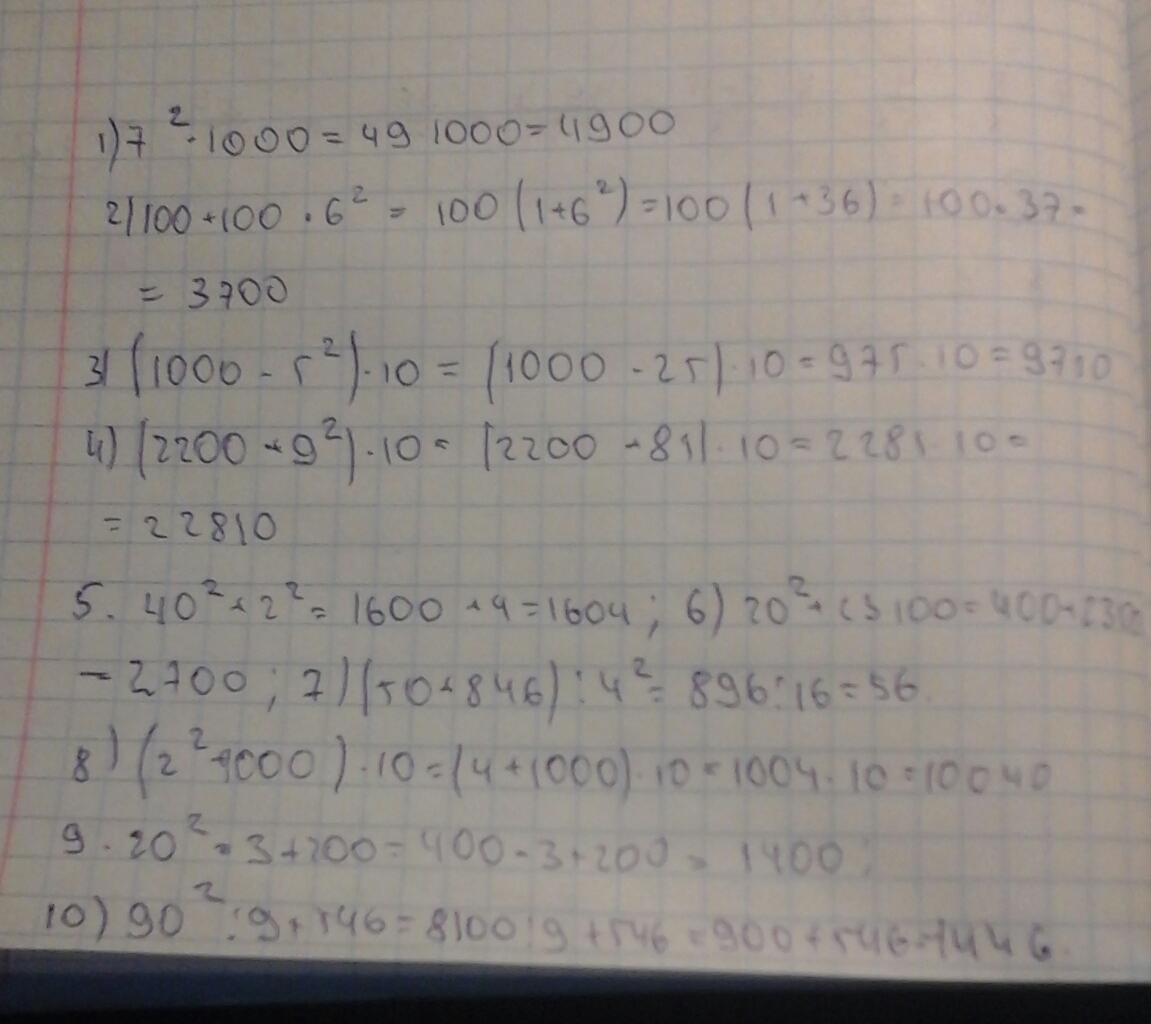 1) 7² · 1000 = 49 1000 = 4900
2) 100 + 100 · 6² = 100 (1+6²) = 100 (1+36) = 100 · 37 =
= 3700
3) (1000 - 5²) · 10 = (1000 - 25) · 10 = 975 · 10 = 9750
4) (2200 + 9²) · 10 = (2200 + 81) · 10 = 2281 · 10 =
= 22810
5. 40² + 2² = 1600 + 4 = 1604 ; 6) 20² + 23 100 = 400 + 2300
= 2700 ; 7) (50 + 846) : 4² = 896 : 16 = 56.
8) (2² + 1000) · 10 = (4 + 1000) · 10 = 1004 · 10 = 10040
9. 20² · 3 + 200 = 400 · 3 + 200 = 1400 ;
10) 90² : 9 + 546 = 8100 : 9 + 546 = 900 + 546 = 1446.